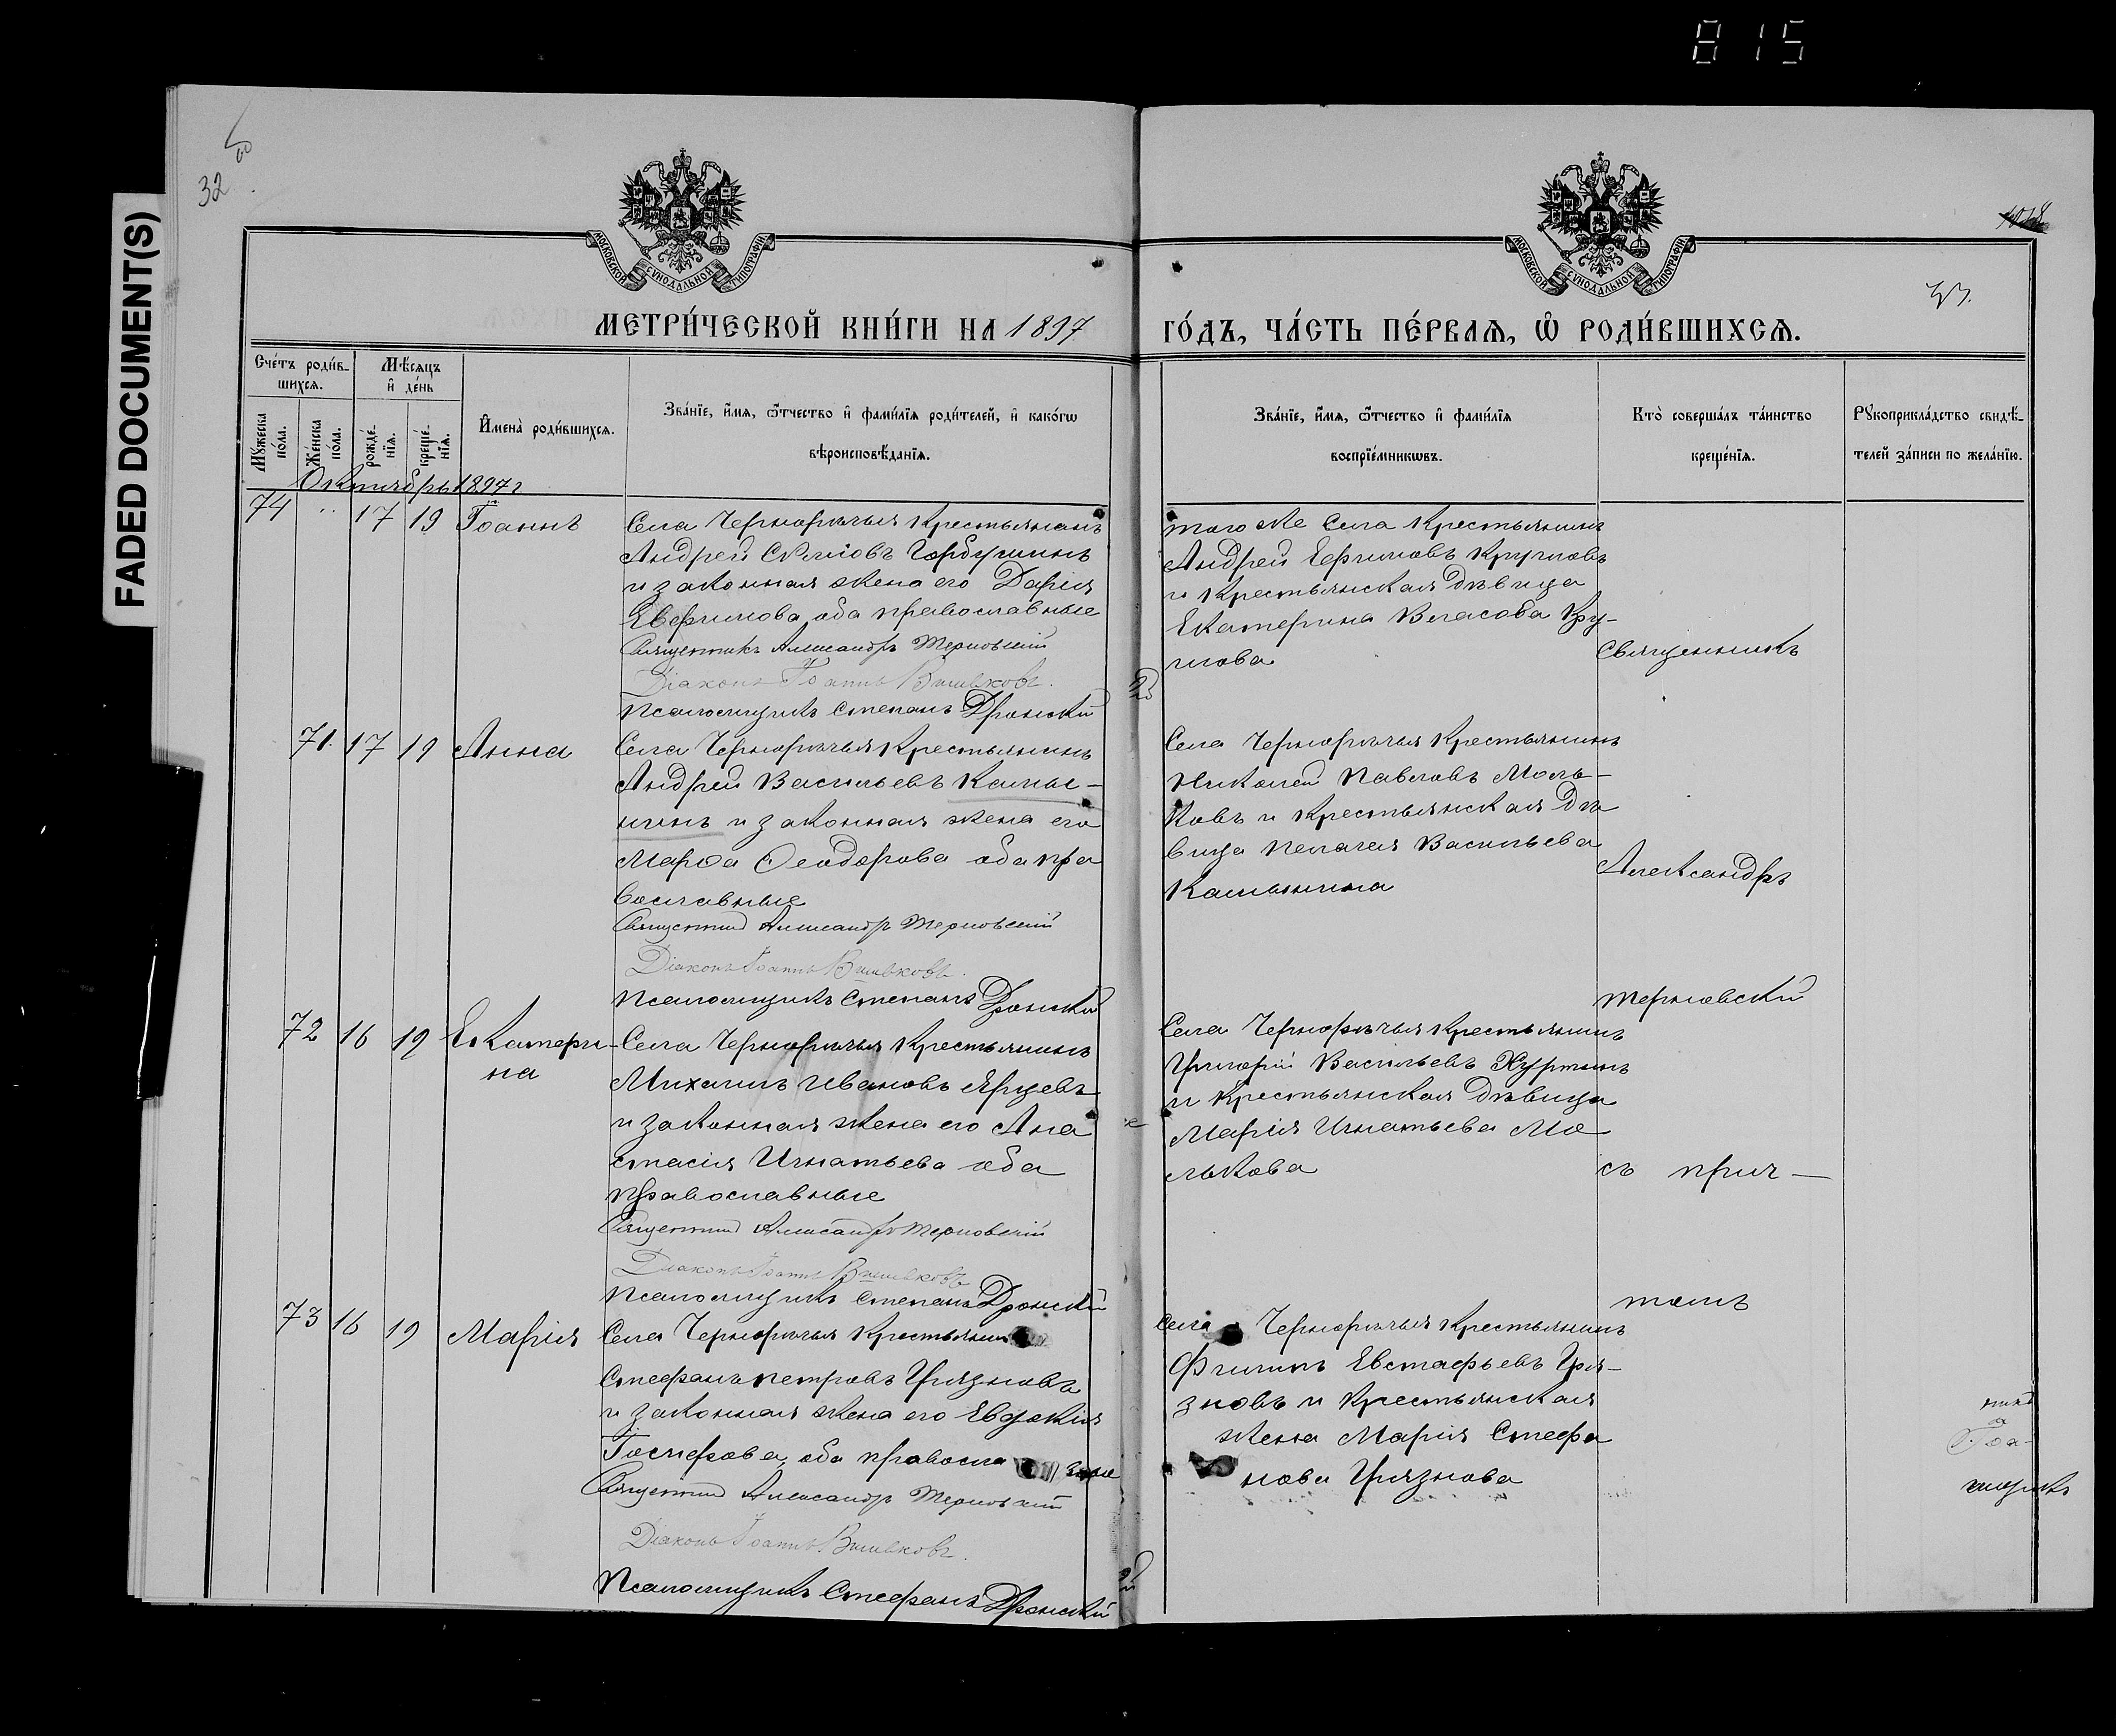 815
FADED DOCUMENT(S)
32
МОСКОВСКОЙ СѴНОДАЛЬНОЙ ТИПОГРАФІИ
МОСКОВСКОЙ СѴНОДАЛЬНОЙ ТИПОГРАФІИ
МЕТРИ́ЧЕСКОЙ КНИ́ГИ НА 1897
ГО́ДЪ, ЧА́СТЬ ПЕ́РВАѦ, Ѡ҆ РОДИ́ВШИХСѦ.
Сче́тъ роди́в-
шихсѧ.
Мꙋ́жеска по́ла.
Же́нска по́ла.
Мѣ́сѧцъ
и҆ де́нь
рожде́-нїѧ.
креще́-нїѧ.
И҆мена̀ роди́вшихсѧ.
Зва́нїе, и҆́мѧ, ѻ҆́тчество и҆ фами́лїѧ роди́телей, и҆ како́гѡ
вѣроисповѣ́данїѧ.
Зва́нїе, и҆́мѧ, ѻ҆́тчество и҆ фами́лїѧ
воспрїе́мникѡвъ.
Кто̀ соверша́лъ та́инство
креще́нїѧ.
Рꙋкоприкла́дство свидѣ́-
телей за́писи по жела́нїю.
Октябрь 1897 г
74 " 17 19 Іоаннъ
Села Черноречья Крестьянинъ
Андрей Горбушинъ
и законная жена его Дарія
Евфимова, оба православные
Священникъ Александръ Терновскій
Діаконъ Іоаннъ
Псаломщикъ Степанъ Дронскій
того же Села Крестьянинъ
Андрей Ефимовъ Кругловъ
и Крестьянская дѣвица
Екатерина Власова Кру-
глова
Священникъ
71. 17 19 Анна
Села Черноречья Крестьянинъ
Андрей Васильевъ Камы-
нинъ и законная жена его
Марѳа Ѳеодорова оба пра
вославные
Священник Александр Терновскій
Діаконъ Іоаннъ
Псаломщикъ Степанъ Дронскій
Села Черноречья Крестьянинъ
Николай Павловъ Моль-
ковъ и Крестьянская дѣ
вица Пелагея Васильева
Камынина
Александръ
Терновскій
72 16 19 Екатери-
на
Села Черноречья Крестьянинъ
Михаилъ Ивановъ Ярцевъ
и законная жена его Ана
стасія Игнатьева оба
православные
Священник Александръ Терновскій
Діаконъ Іоаннъ
Псаломщикъ Степанъ Дронскій
Села Черноречья Крестьянинъ
Григорій Васильевъ
и Крестьянская дѣвица
Марія Игнатьева Мо
лькова
съ прич-
томъ
73 16 19 Марія
Села Черноречья Крестьянин
Стефанъ Петровъ Грязновъ
и законная жена его Евдокія
Іосифова, оба правосла вные
Священник Александръ Терновскій
Діаконъ Іоаннъ
Псаломщикъ Стефанъ Дронскій
Села Черноречья Крестьянинъ
Филипъ Евстафьевъ Гря-
зновъ и Крестьянская
жена Марія Стефа
нова Грязнова
никъ
Іоа-
мщикъ